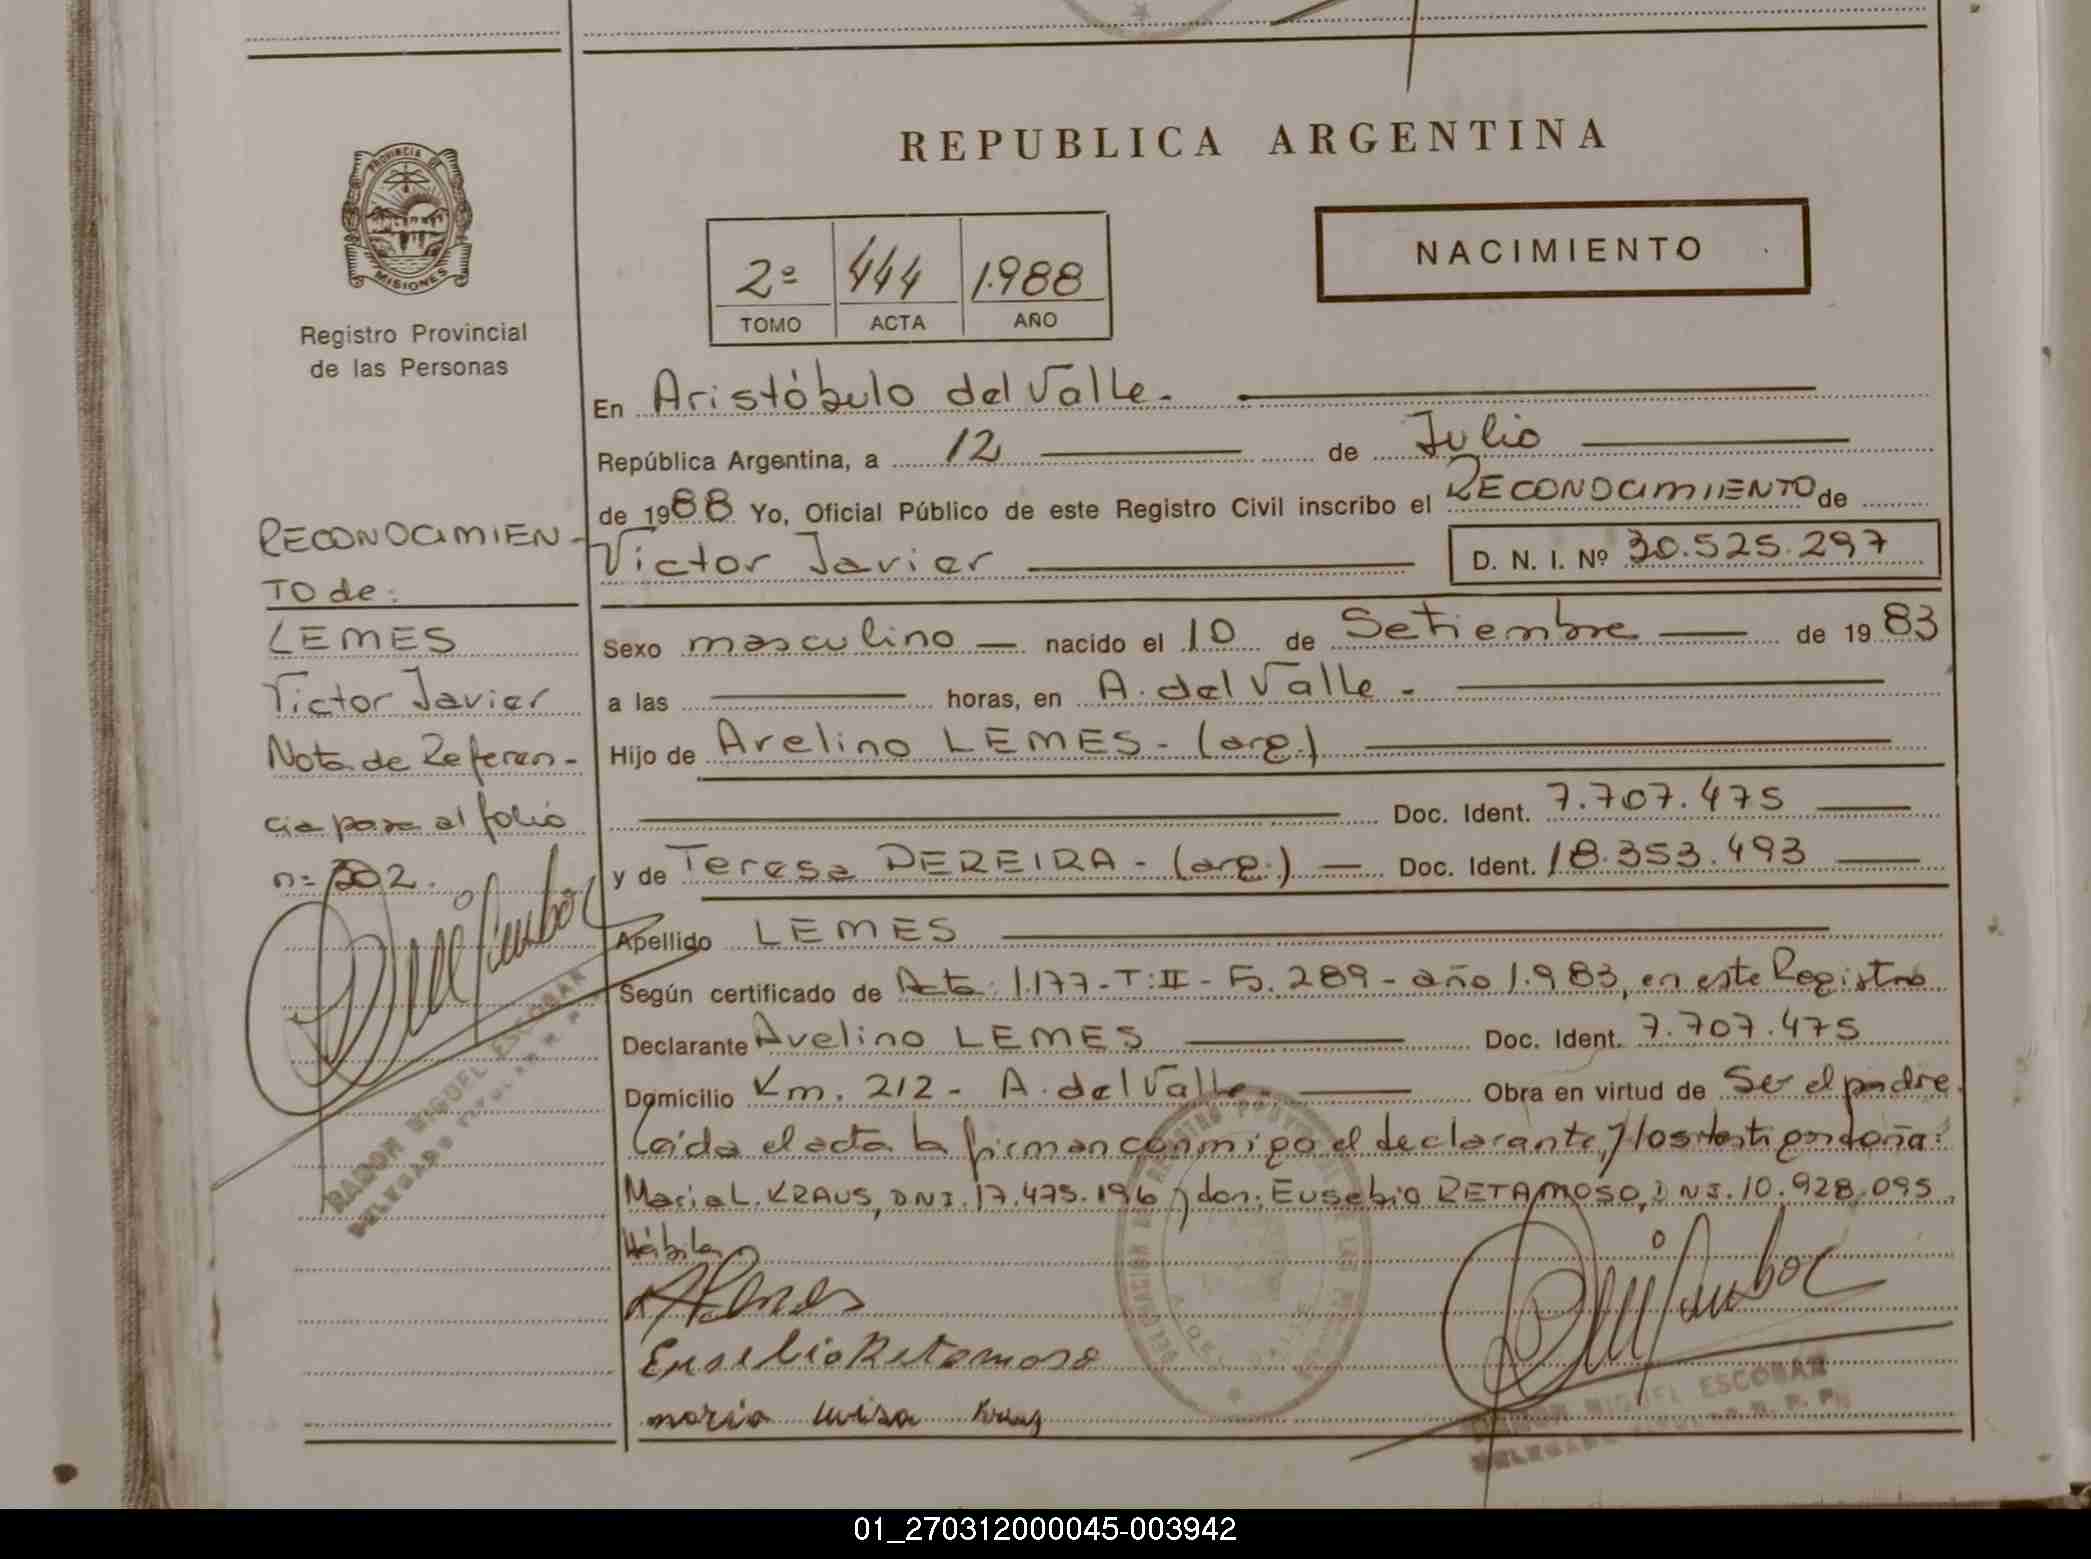 REPUBLICA ARGENTINA
PROVINCIA DE
MISIONES
Registro Provincial
de las Personas
NACIMIENTO
2º 444 1.988
TOMO ACTA AÑO
En Aristóbulo del Valle.
República Argentina, a 12 de Julio
de 1988 Yo, Oficial Público de este Registro Civil inscribo el RECONOCIMIENTO de
Victor Javier D. N. I. Nº 30.525.297
Sexo masculino nacido el 10 de Setiembre de 1983
a las horas, en A. del Valle.
Hijo de Avelino LEMES - (arg.)
Doc. Ident. 7.707.475
y de Teresa PEREIRA - (arg.) Doc. Ident. 18.353.493
Apellido LEMES
Según certificado de Acta: 1.177 - T: II - F. 289 - año 1.983, en este Registro
Declarante Avelino LEMES Doc. Ident. 7.707.475
Domicilio Km. 212 - A. del Valle. Obra en virtud de Ser el padre.
Leída el acta la firman conmigo el declarante, y los testigos doña:
Maria L. KRAUS, DNI. 17.475.196 y don: Eusebio RETAMOSO, DNI. 10.928.095
Hábiles
Eusebio Retamoso
maria luisa
RAMON MIGUEL ESCOBAR
RECONOCIMIEN-
TO de:
LEMES
Victor Javier
Nota de Referen-
cia pasa al folio
nº 202.
RAMON MIGUEL ESCOBAR
DELEGADO TITULAR R. P.
01_270312000045-003942